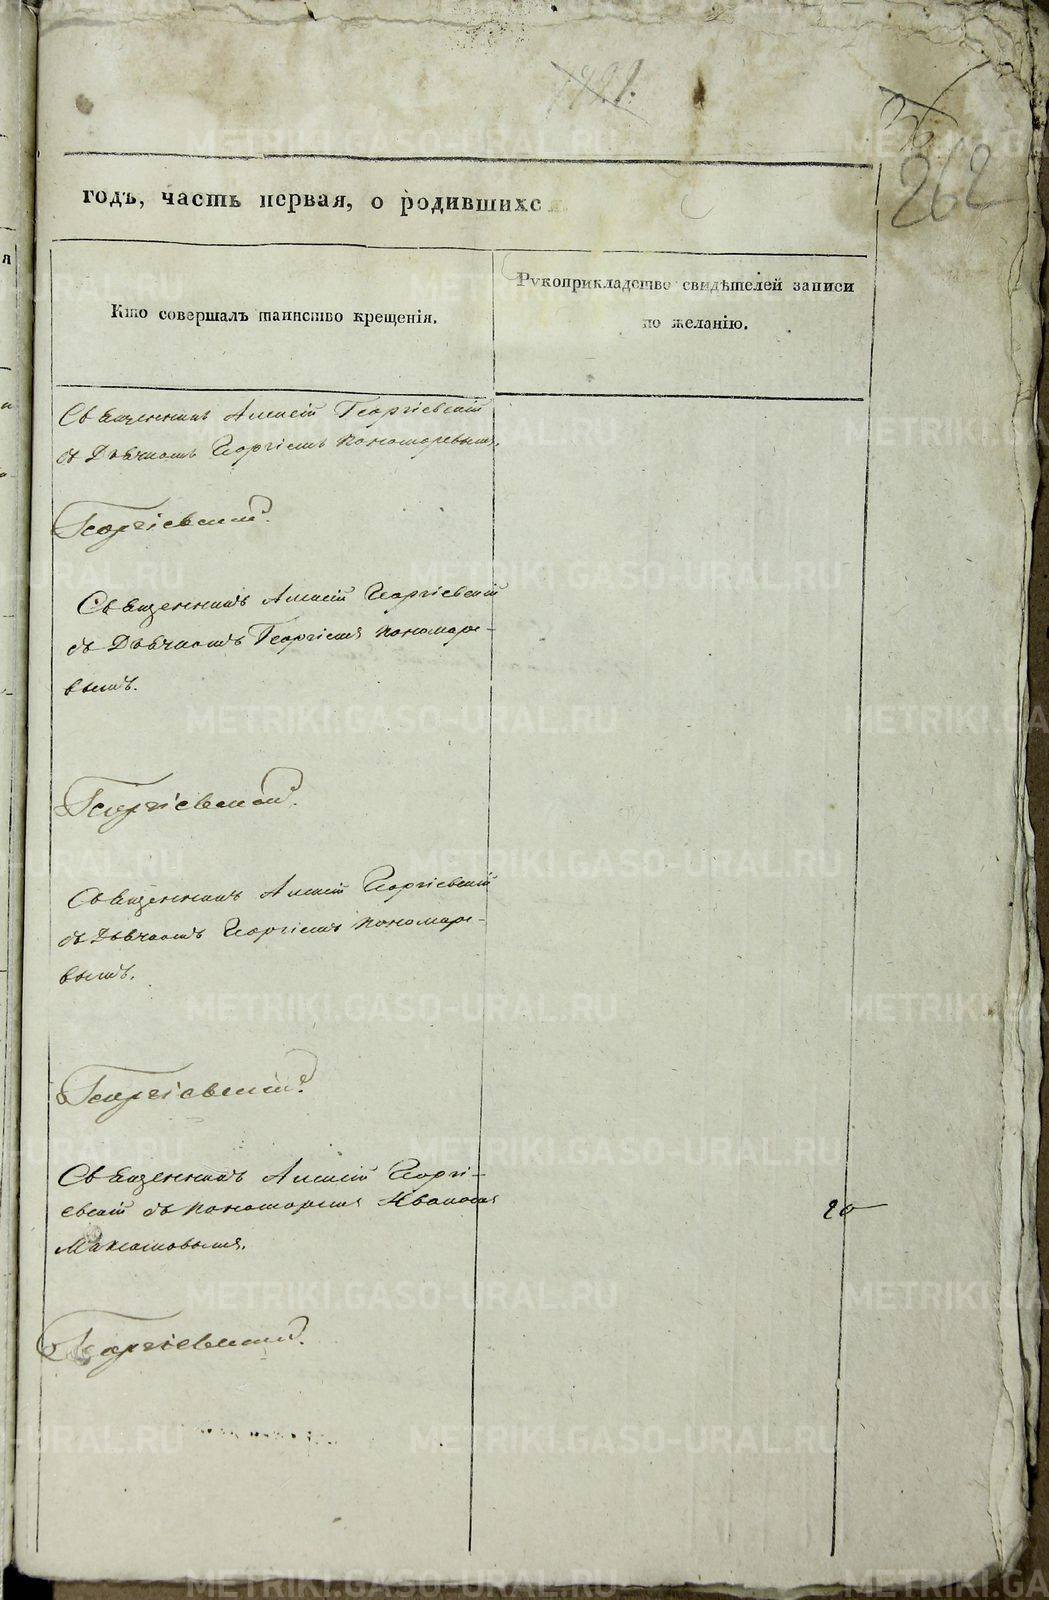 262
годъ, часть первая, о родившихся.
Кто совершалъ таинство крещенія.
Рукоприкладство свидѣтелей записи
по желанію.
Священникъ Алексій Георгіевскій
съ Дьячкомъ Георгіемъ Пономаревымъ.
Георгіевский.
Священникъ Алексій Георгіевскій
съ Дьячкомъ Георгіемъ Пономаре-
вымъ.
Георгіевский.
Священникъ Алексій Георгіевскій
съ Дьячкомъ Георгіемъ Пономаре-
вымъ.
Георгіевский.
Священникъ Алексій Георгі-
евскій съ пономаремъ Иваномъ
Максимовымъ.
Георгіевский.
METRIKI.GASO-URAL.RU